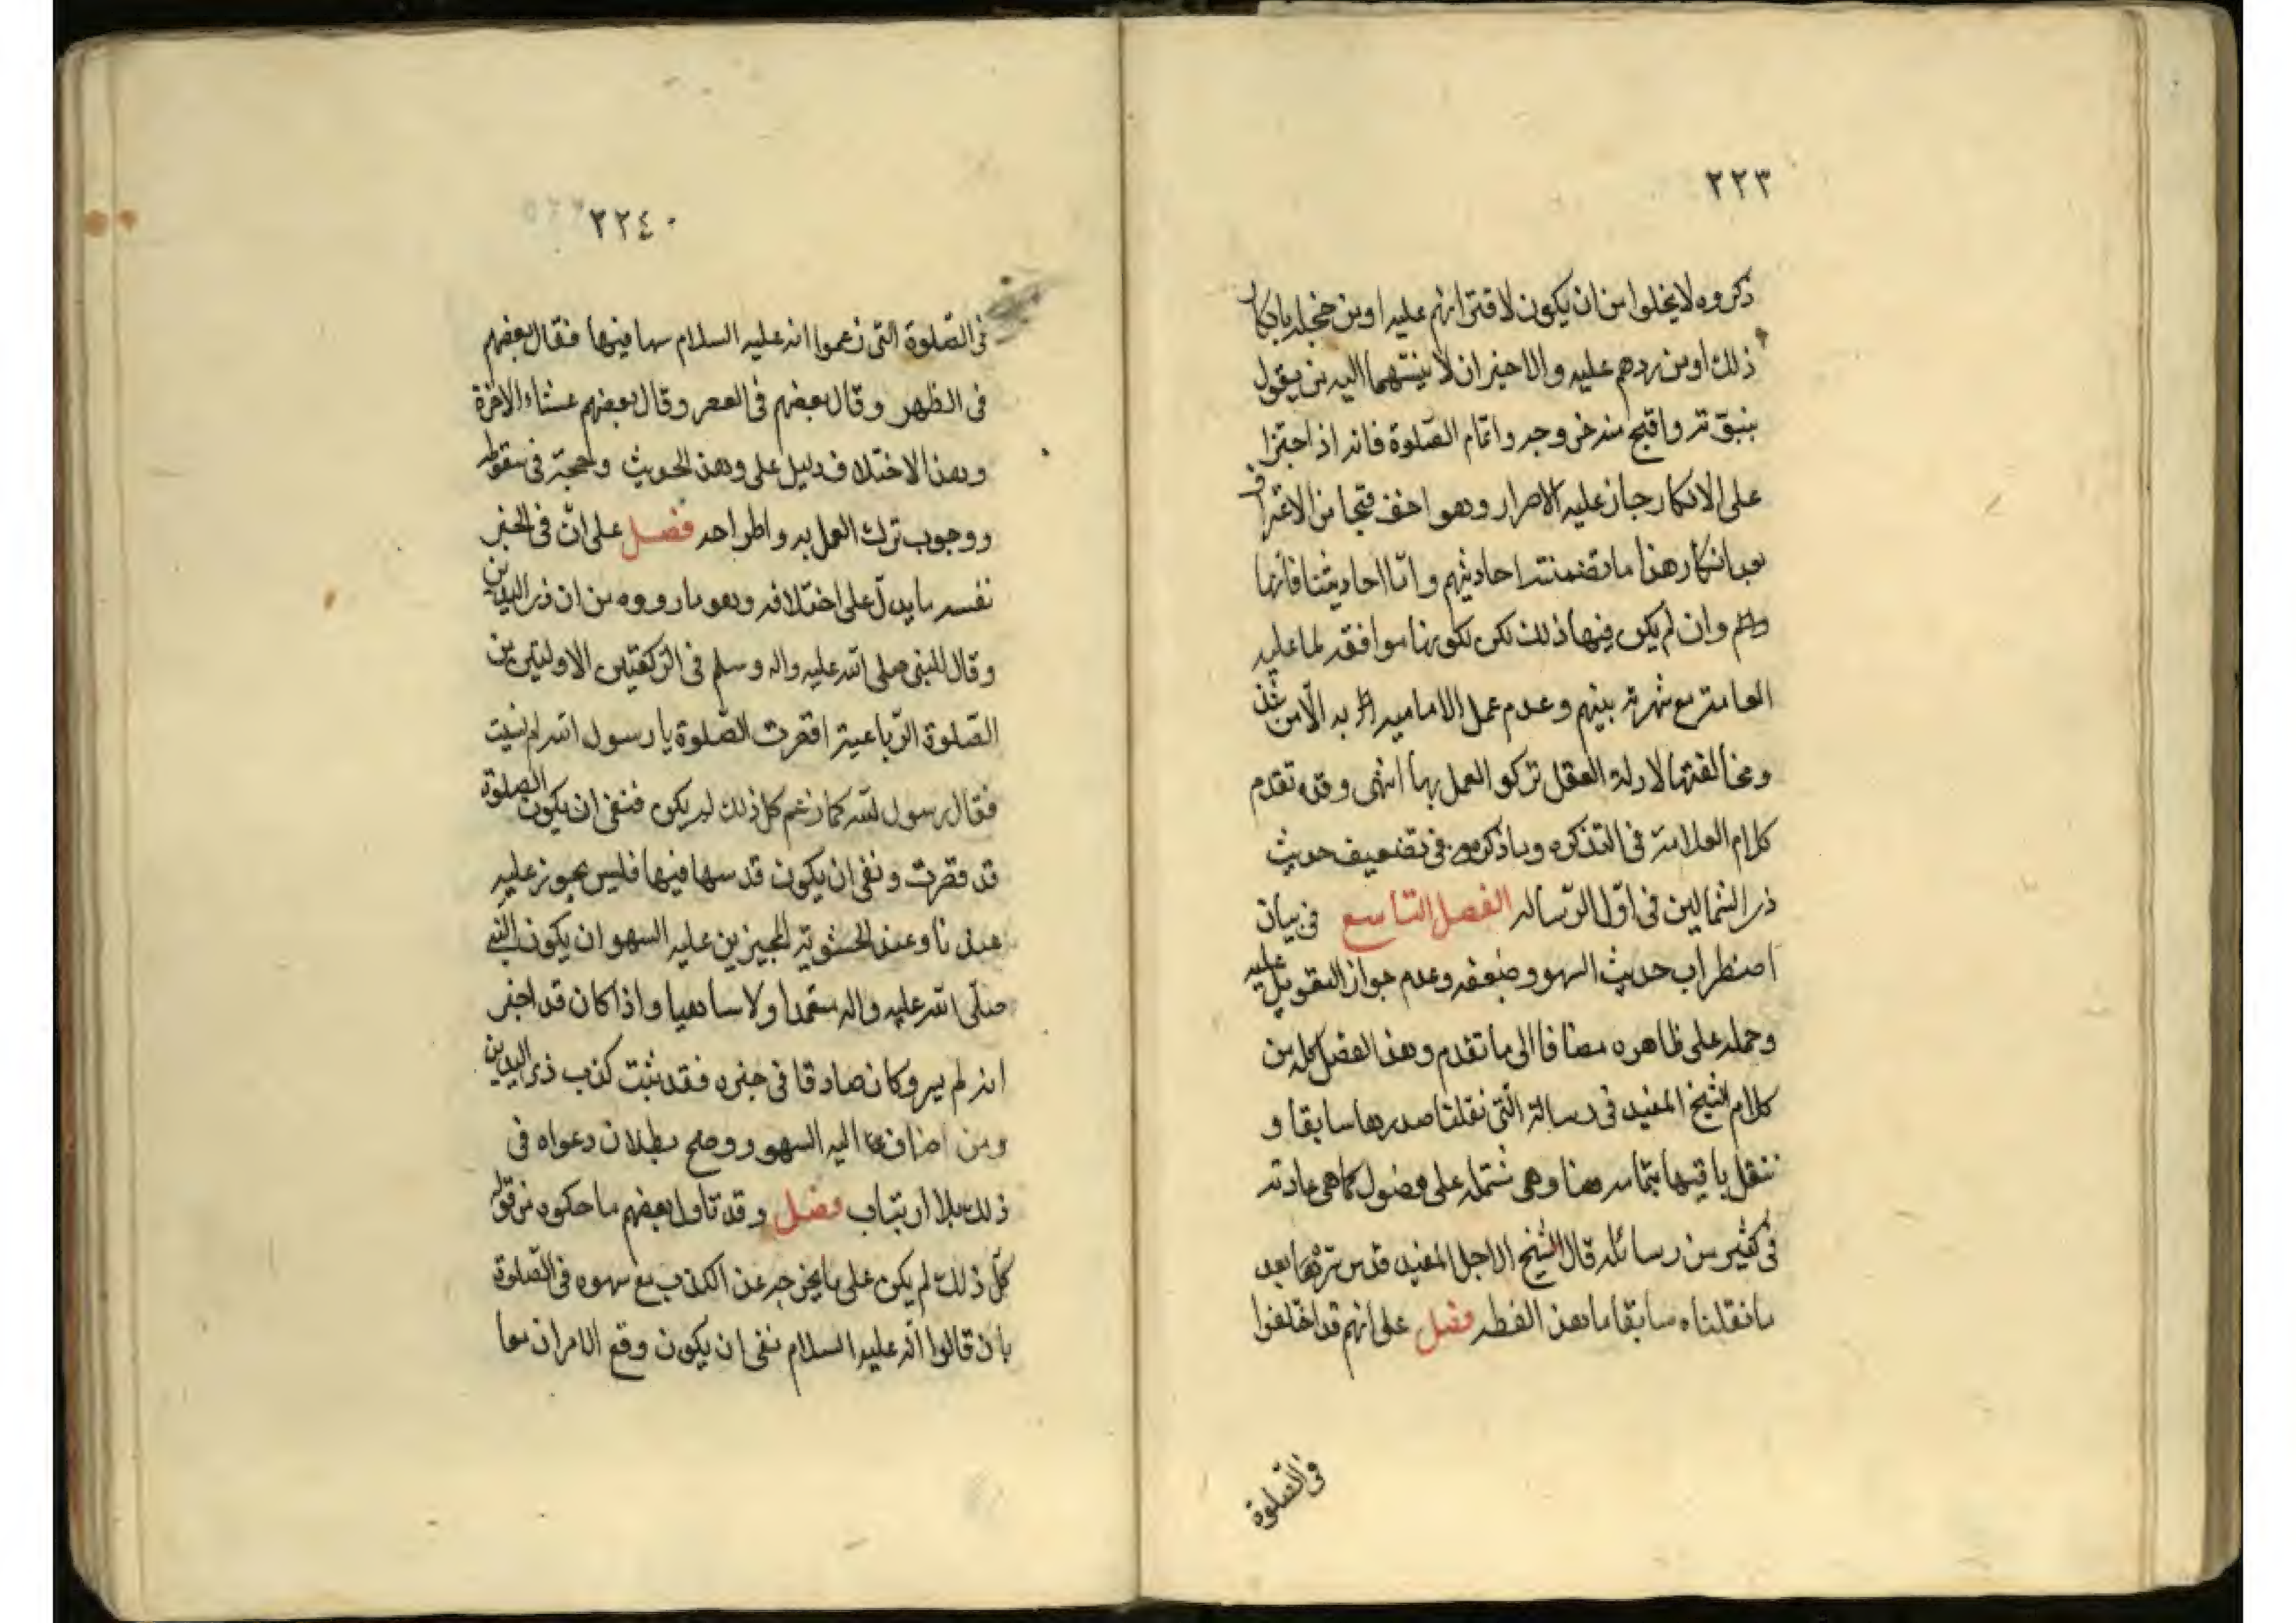 ٢٢٣
ذكروه لا يخلوا من ان يكون لاقترانهم عليه او من خجله بانكار
ذلك او من ردهم عليه والاخيران لا ينسبهما اليه من يقول
بنبوته واقبح منه خروجه واتمام الصّلوة فانه اذا اجتزا
على الانكار جاز عليه الاصرار وهو اخف قبحا من الاعتراف
بعد انكار هذا ما تضمنته احاديثهم وامّا احاديثنا فانها
وان لم يكن فيها ذلك لكن لكونها موافقه لما عليه
العامة مع شهرته بينهم وعدم عمل الاماميه به الّا من شذ
ومخالفتها لادلة العقل تركو العمل بها انتهى وقد تقدم
كلام العلامة فى التذكره وما ذكره فى تضعيف حديث
ذى الشمالين فى اوّل الرّساله الفصل التاسع فى بيان
اضطراب حديث السهو وضعفه وعدم جواز التعويل عليه
وحمله على ظاهره مضافا الى ما تقدم وهذا الفصل كله من
كلام الشيخ المفيد فى رسالة الّتى نقلنا صدرها سابقا و
ننقل باقيها بتمامه هنا وهى مشتمله على فصول كما هى عادته
فى كثير من رسائله قال الشيخ الاجل المفيد قدس سره بعد
ما نقلناه سابقا ما هذا لفظه فصل على انهم قد اختلفوا
فى الصّلوة
٢٢٤٠
فى الصّلوة التى زعموا انه عليه السلام سها فيها فقال بعضهم
فى الظهر وقال بعضهم فى العصر وقال بعضهم عشاء الاخرة
وهذا الاختلاف دليل على وهن الحديث وحجة فى سقوطه
ووجوب ترك العمل به واطراحه فصل على انّ فى الخبر
نفسه ما يدلّ على اختلافه وهو ما رووه من ان ذى اليدين
وقال للنبى صلى الله عليه واله وسلم فى الرّكعتين الاولتين من
الصّلوة الرّباعية اقصرت الصّلوة يا رسول الله ام نسيت
فقال رسول الله كما زعم كل ذلك لم يكن فنفى ان يكون الصلوة
قد قصرت ونفى ان يكون قد سها فيها فليس يجوز عليه
عندنا وعند الحشوية المجيزين عليه السهو ان يكون النبى
صلّى الله عليه واله متعمدا ولا ساهيا واذا كان قد اخبر
انه لم يسه وكان صادقا فى خبره فقد ثبت كذب ذى اليدين
ومن اضاف اليه السهو ووضح بطلان دعواه فى
ذلك بلا ارتياب فصل وقد تاول بعضهم ما حكوه من قوله
كلّ ذلك لم يكن على ما يخرجه عن الكذب مع سهوه فى الصّلوة
بان قالوا انّه عليه السلام نفى ان يكون وقع الامران معا